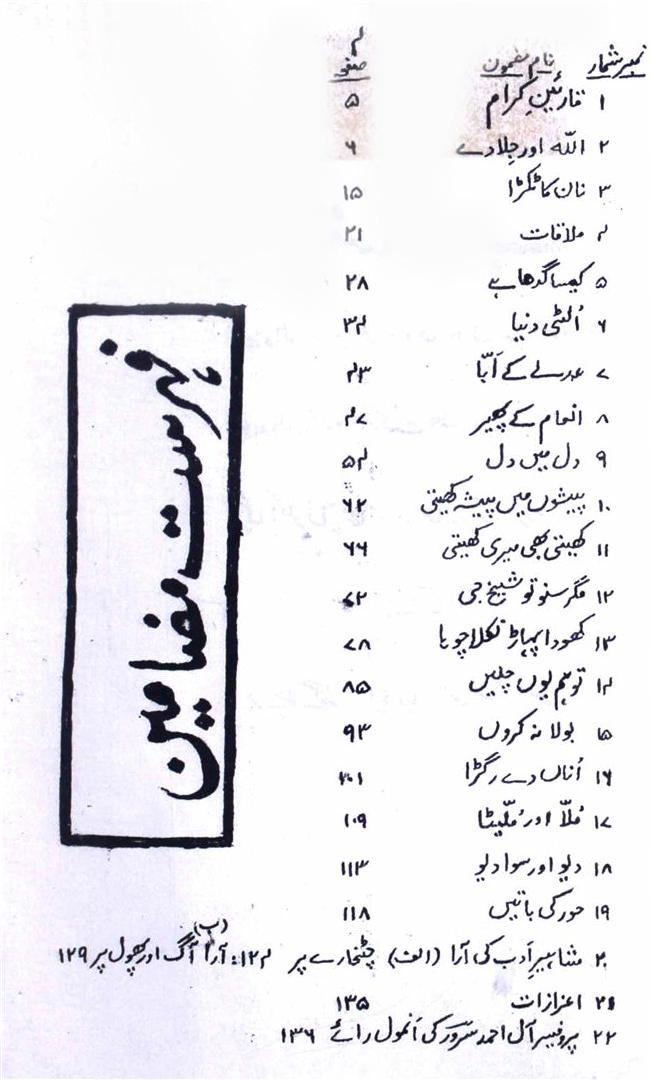 نمبر شمار نام مضمون صفحہ
۴
۱ قارئینِ کرام ۵
۲ اللّٰہ اور جِلادے ۶
۳ نان کا ٹکڑا ۱۵
۴ ملاقات ۲۱
۵ کیسا گدھا ہے ۲۸
۶ اُلٹی دنیا ۳۴
۷ عدلے کے اَبّا ۴۳
۸ انعام کے پھیر ۴۷
۹ دل میں دل ۵۴
۱۰ پیشوں میں پیشہ کھیتی ۶۲
۱۱ کھیتی بھی میری کھیتی ۶۶
۱۲ مگر سنو تو شیخ جی ۷۲
۱۳ کھودا پہاڑ نکلا چوہا ۷۸
۱۴ تو ہم یوں چلیں ۸۵
۱۵ بولا نہ کروں ۹۳
۱۶ اُناں دے رگڑا ۱۰۱
۱۷ مُلّا اور مُلّیٹا ۱۰۹
۱۸ دیو اور سوا دیو ۱۱۳
۱۹ حور کی باتیں ۱۱۸
۲۰ مشاہیرِ اَدب کی آرا (الف) چٹخارے پر ۱۲۴؛ (ب) آرا آگ اور پھول پر ۱۲۹
۲۱ اعزازات ۱۳۵
۲۲ پروفیسر آل احمد سرور کی اَنمول رائے ۱۳۶
فہرست مضامین